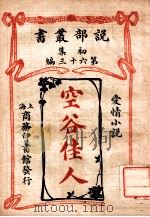 説部叢書
初集
第六十三編
愛情小説
空谷佳人
上海
商務印書館發行